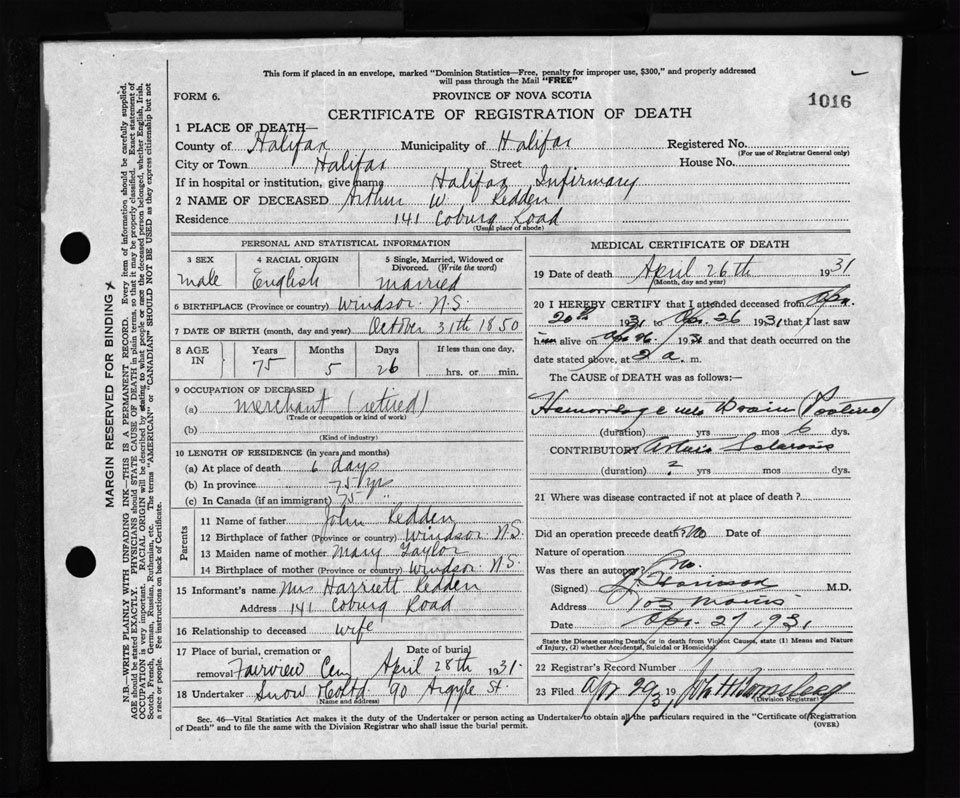 This form if placed in an envelope, marked "Dominion Statistics—Free, penalty for improper use, $300," and properly addressed
will pass through the Mail "FREE"
FORM 6.
PROVINCE OF NOVA SCOTIA
1016
CERTIFICATE OF REGISTRATION OF DEATH
1 PLACE OF DEATH—
County of Halifax Municipality of Halifax Registered No.
(For use of Registrar General only)
City or Town Halifax Street House No.
If in hospital or institution, give name Halifax Infirmary
2 NAME OF DECEASED Arthur W. Redden
Residence 141 Coburg Road
(Usual place of abode)
PERSONAL AND STATISTICAL INFORMATION
3 SEX 4 RACIAL ORIGIN 5 Single, Married, Widowed or
Divorced. (Write the word)
male English married
6 BIRTHPLACE (Province or country) Windsor N.S.
7 DATE OF BIRTH (month, day and year) October 31th 1850
8 AGE IN Years Months Days If less than one day,
75 5 26 hrs. or min.
9 OCCUPATION OF DECEASED
(a) merchant (retired)
(Trade or occupation or kind of work)
(b)
(Kind of industry)
10 LENGTH OF RESIDENCE (in years and months)
(a) At place of death 6 days
(b) In province 75 yrs
(c) In Canada (if an immigrant) 75 "
Parents
11 Name of father John Redden
12 Birthplace of father (Province or country) Windsor N.S.
13 Maiden name of mother Mary Taylor
14 Birthplace of mother (Province or country) Windsor N.S.
15 Informant's name Mrs Harriett Redden
Address 141 Coburg Road
16 Relationship to deceased wife
17 Place of burial, cremation or Date of burial
removal Fairview Cem April 28th 1931
18 Undertaker Snow & Co Ltd 90 Argyle St.
(Name and address)
MEDICAL CERTIFICATE OF DEATH
19 Date of death April 26th 1931
(Month, day and year)
20 I HEREBY CERTIFY that I attended deceased from Apr.
20th 1931 to Apr. 26 1931 that I last saw
him alive on Apr 26 1931 and that death occurred on the
date stated above, at 2 a. m.
The CAUSE of DEATH was as follows:—
Hemorrhage into Brain
(duration) yrs mos 6 dys.
CONTRIBUTORY Arterio Sclerosis
(duration) ? yrs mos dys.
21 Where was disease contracted if not at place of death?
Did an operation precede death? No Date of
Nature of operation
Was there an autopsy? No.
(Signed) M.D.
Address 103 Morris
Date Apr. 27 1931
State the Disease causing Death, or in death from Violent Causes, state (1) Means and Nature
of Injury, (2) whether Accidental, Suicidal or Homicidal.
22 Registrar's Record Number
23 Filed Apr 29 1931
(Division Registrar)
Sec. 46—Vital Statistics Act makes it the duty of the Undertaker or person acting as Undertaker to obtain all the particulars required in the "Certificate of Registration
of Death" and to file the same with the Division Registrar who shall issue the burial permit.
(OVER)
MARGIN RESERVED FOR BINDING
N.B.—WRITE PLAINLY WITH UNFADING INK—THIS IS A PERMANENT RECORD. Every item of information should be carefully supplied.
AGE should be stated EXACTLY. PHYSICIANS should STATE CAUSE OF DEATH in plain terms, so that it may be properly classified. Exact statement of
OCCUPATION is very important. RACIAL ORIGIN will be described by stating to what people or race the deceased person belonged, whether English, Irish,
Scotch, French, German, Russian, Ruthenian, etc. The terms "AMERICAN" or "CANADIAN" SHOULD NOT BE USED as they express citizenship but not
a race or people. Fee instructions on back of Certificate.